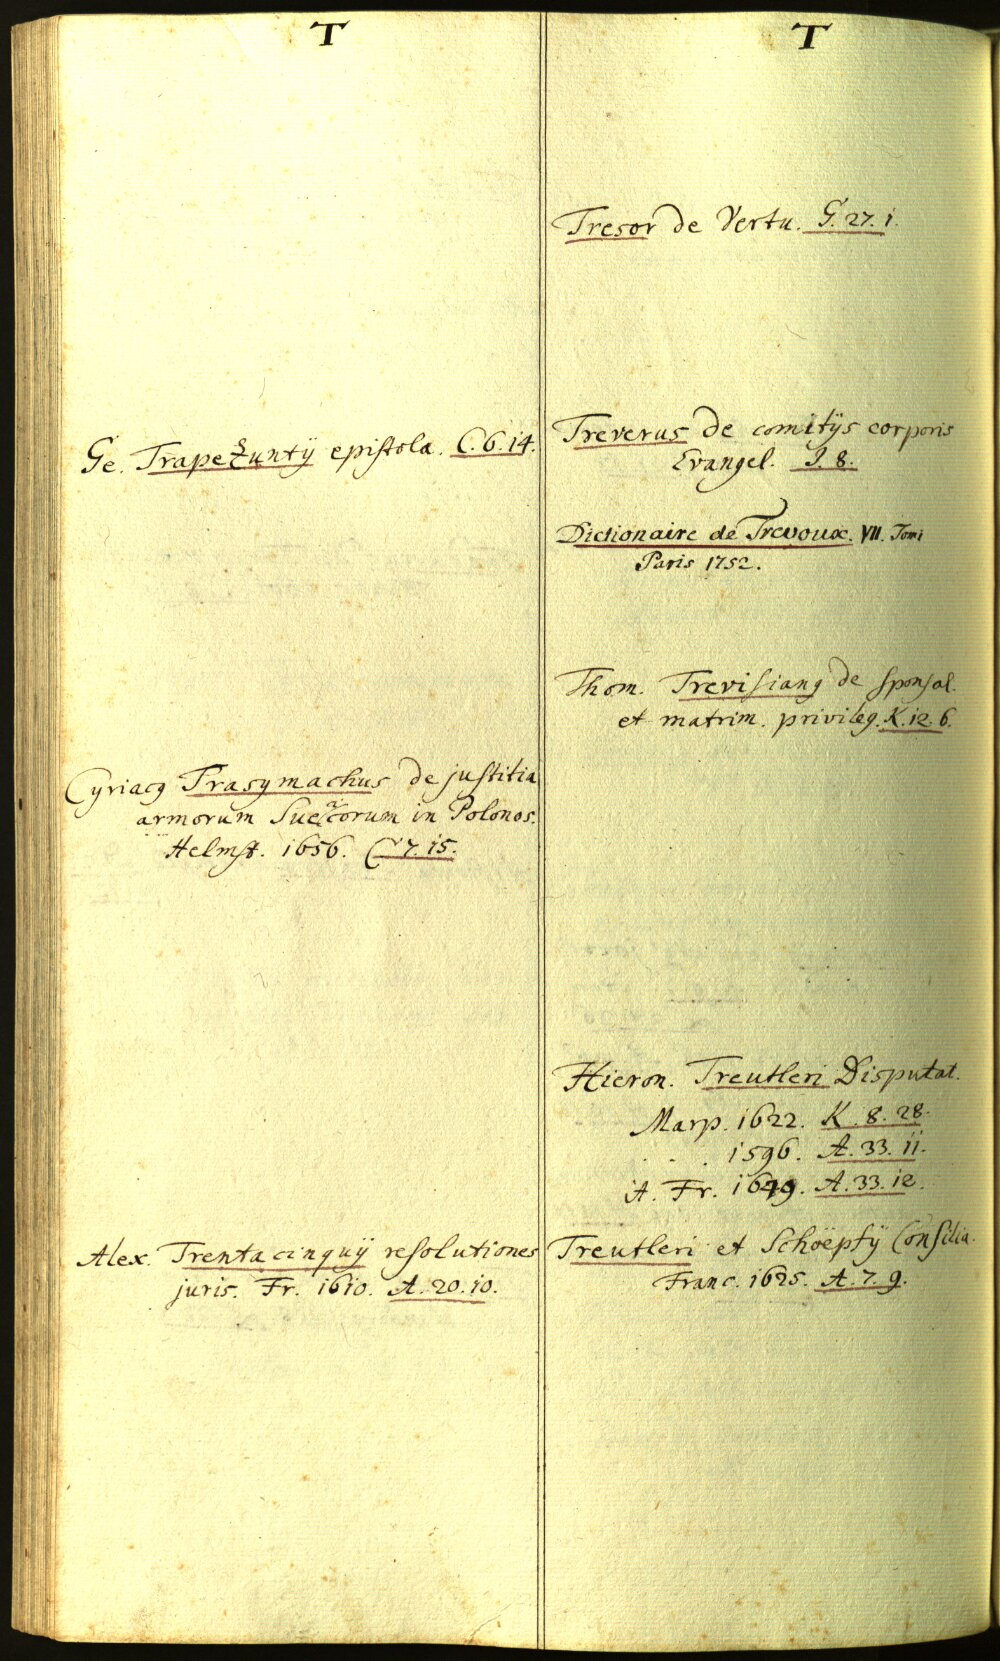 T
Ge. Trapezuntÿ epistola. C. 6. 14.
Cyriacg Trasymachus de justitia
armorum Suecorum in Polonos.
Helmst. 1656. C 7. 15.
Alex. Trentacinquÿ resolutiones
juris. Fr. 1610. A. 20. 10.
T
Tresor de Vertu. G. 27. 1.
Treverus de comitÿs corporis
Evangel. J. 8.
Dictionaire de Trevoux. VII. Tomi
Paris 1752.
Thom. Trevisiang de sponsal.
et matrim. privileg. K. 12. 6.
Hieron. Treutleri Disputat.
Marp. 1622. K. 8. 28.
. . . 1596. A. 33. 11.
A. Fr. 1649. A. 33. 12.
Treutleri et Schöepfÿ Consilia.
Franc. 1625. A. 7. 9.